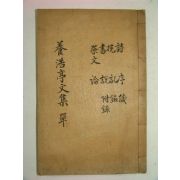 詩 序
記 銘
書 說 附錄
祭文 論
養浩亭文集 單